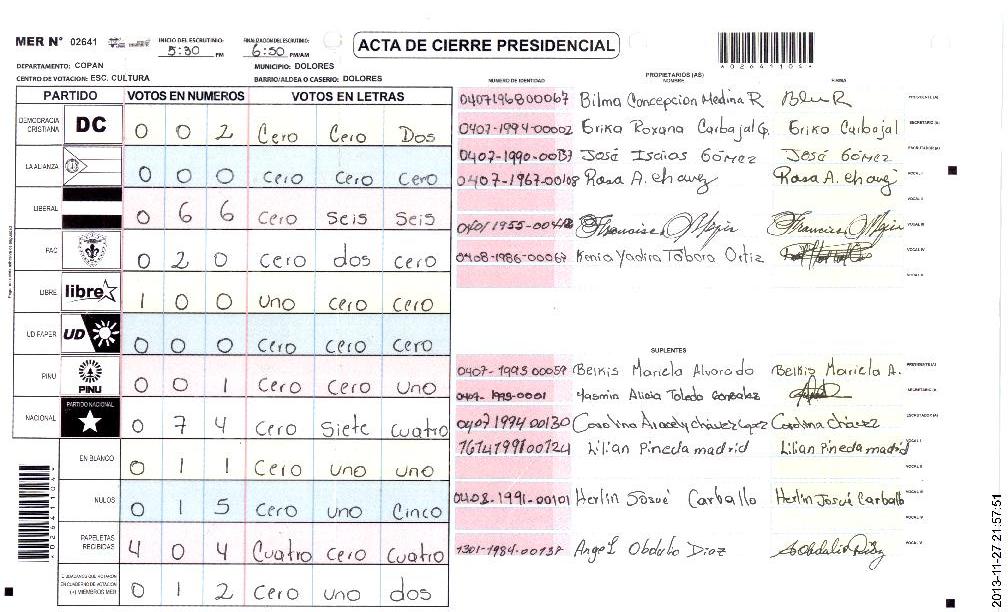 MER N° 02641 INICIO DEL ESCRUTINIO: 5:30 PM FINALIZACION DEL ESCRUTINIO: 6:50 PM/AM ACTA DE CIERRE PRESIDENCIAL
DEPARTAMENTO: COPAN MUNICIPIO: DOLORES
CENTRO DE VOTACION: ESC. CULTURA BARRIO/ALDEA O CASERIO: DOLORES
*02641104*
PARTIDO VOTOS EN NUMEROS VOTOS EN LETRAS
DEMOCRACIA CRISTIANA DC 0 0 2 Cero Cero Dos
LA ALIANZA 0 0 0 Cero Cero Cero
LIBERAL 0 6 6 Cero Seis Seis
PAC 0 2 0 Cero dos cero
LIBRE libre 1 0 0 uno cero cero
UD FAPER UD 0 0 0 cero cero cero
PINU PINU 0 0 1 Cero Cero uno
NACIONAL PARTIDO NACIONAL 0 7 4 Cero Siete cuatro
EN BLANCO 0 1 1 Cero uno uno
NULOS 0 1 5 Cero uno Cinco
PAPELETAS RECIBIDAS 4 0 4 Cuatro cero cuatro
CIUDADANOS QUE VOTARON EN CUADERNO DE VOTACION (+) MIEMBROS MER 0 1 2 Cero uno dos
PROPIETARIOS (AS)
NUMERO DE IDENTIDAD NOMBRE FIRMA
0407196800067 Bilma Concepcion Medina R PRESIDENTE (A)
0407-1994-00002 Erika Roxana Carbajal G. Erika Carbajal SECRETARIO (A)
0407-1990-00137 José Isaias Gómez José Gómez ESCRUTADOR (A)
0407-1967-00108 Rosa A. chavez Rosa A. chavez VOCAL I
VOCAL II
Francisco Mejia Francisco Mejia VOCAL III
0408-1986-00067 Kenia Yadira Tabora Ortiz VOCAL IV
VOCAL V
SUPLENTES
0407-1993 00059 Belkis Mariela Alvarado Belkis Mariela A. PRESIDENTE (A)
0407-1993-0001 Yasmin Alicia Toledo Gonzalez SECRETARIO (A)
0407 1994 00130 Carolina Aracely chávez Lopez Carolina chávez ESCRUTADOR (A)
1614199100124 Lilian Pineda madrid Lilian Pineda madrid VOCAL I
VOCAL II
0408-1991-00101 Herlin Josué Carballo Herlin Josué Carballo VOCAL III
VOCAL IV
1301-1984-00137 Angel Obdulio Diaz VOCAL V
*02641104*
2013-11-27 21:57:51